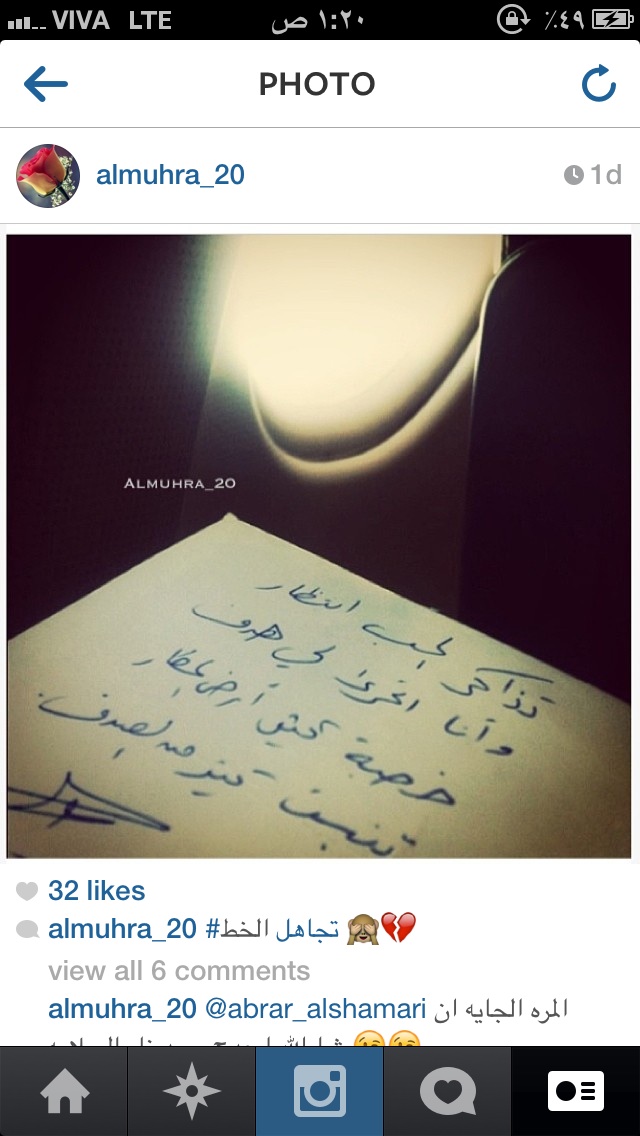 VIVA LTE ١:٢٠ ص ٪٤٩
PHOTO
almuhra_20 1d
ALMUHRA_20
تذاكر الحب انتظار
وأنا اتحرى لي هدف
أرض المطار
تنبت من الصدف
32 likes
almuhra_20 #تجاهل الخط 🙈💔
view all 6 comments
almuhra_20 @abrar_alshamari المره الجايه ان